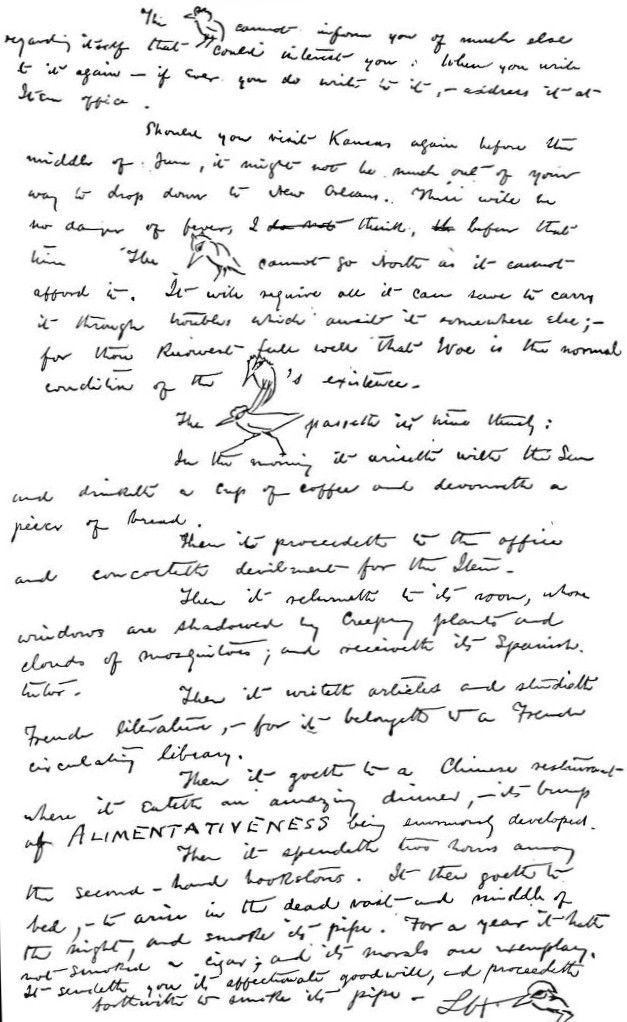 The cannot inform you of much else
regarding itself that could interest you. When you write
to it again — if ever you do write to it, — address it at
Item office.
Should you visit Kansas again before the
middle of June, it might not be much out of your
way to drop down to New Orleans. There will be
no danger of fever, I do not think, before that
time The cannot go North as it cannot
afford it. It will require all it can save to carry
it through troubles which await it somewhere else; —
for thou knowest full well that Woe is the normal
condition of the 's existence —
The passeth its time thusly:
In the morning it ariseth with the Sun
and drinketh a cup of coffee and devoureth a
piece of bread.
Then it proceedeth to the office
and concocteth devilment for the Item —
Then it returneth to its room, whose
windows are shadowed by creeping plants and
clouds of mosquitoes; and receiveth its Spanish
tutor —
Then it writeth articles and studieth
French literature, — for it belongeth to a French
circulating library.
Then it goeth to a Chinese restaurant
where it eateth an amazing dinner, — its bump
of ALIMENTATIVENESS being enormously developed.
Then it spendeth two hours among
the second-hand bookstores. It then goeth to
bed, — to arise in the dead vast and middle of
the night, and smoke its pipe. For a year it hath
not smoked a cigar; and its morals are exemplary.
It sendeth you its affectionate goodwill, and proceedeth
forthwith to smoke its pipe — LH